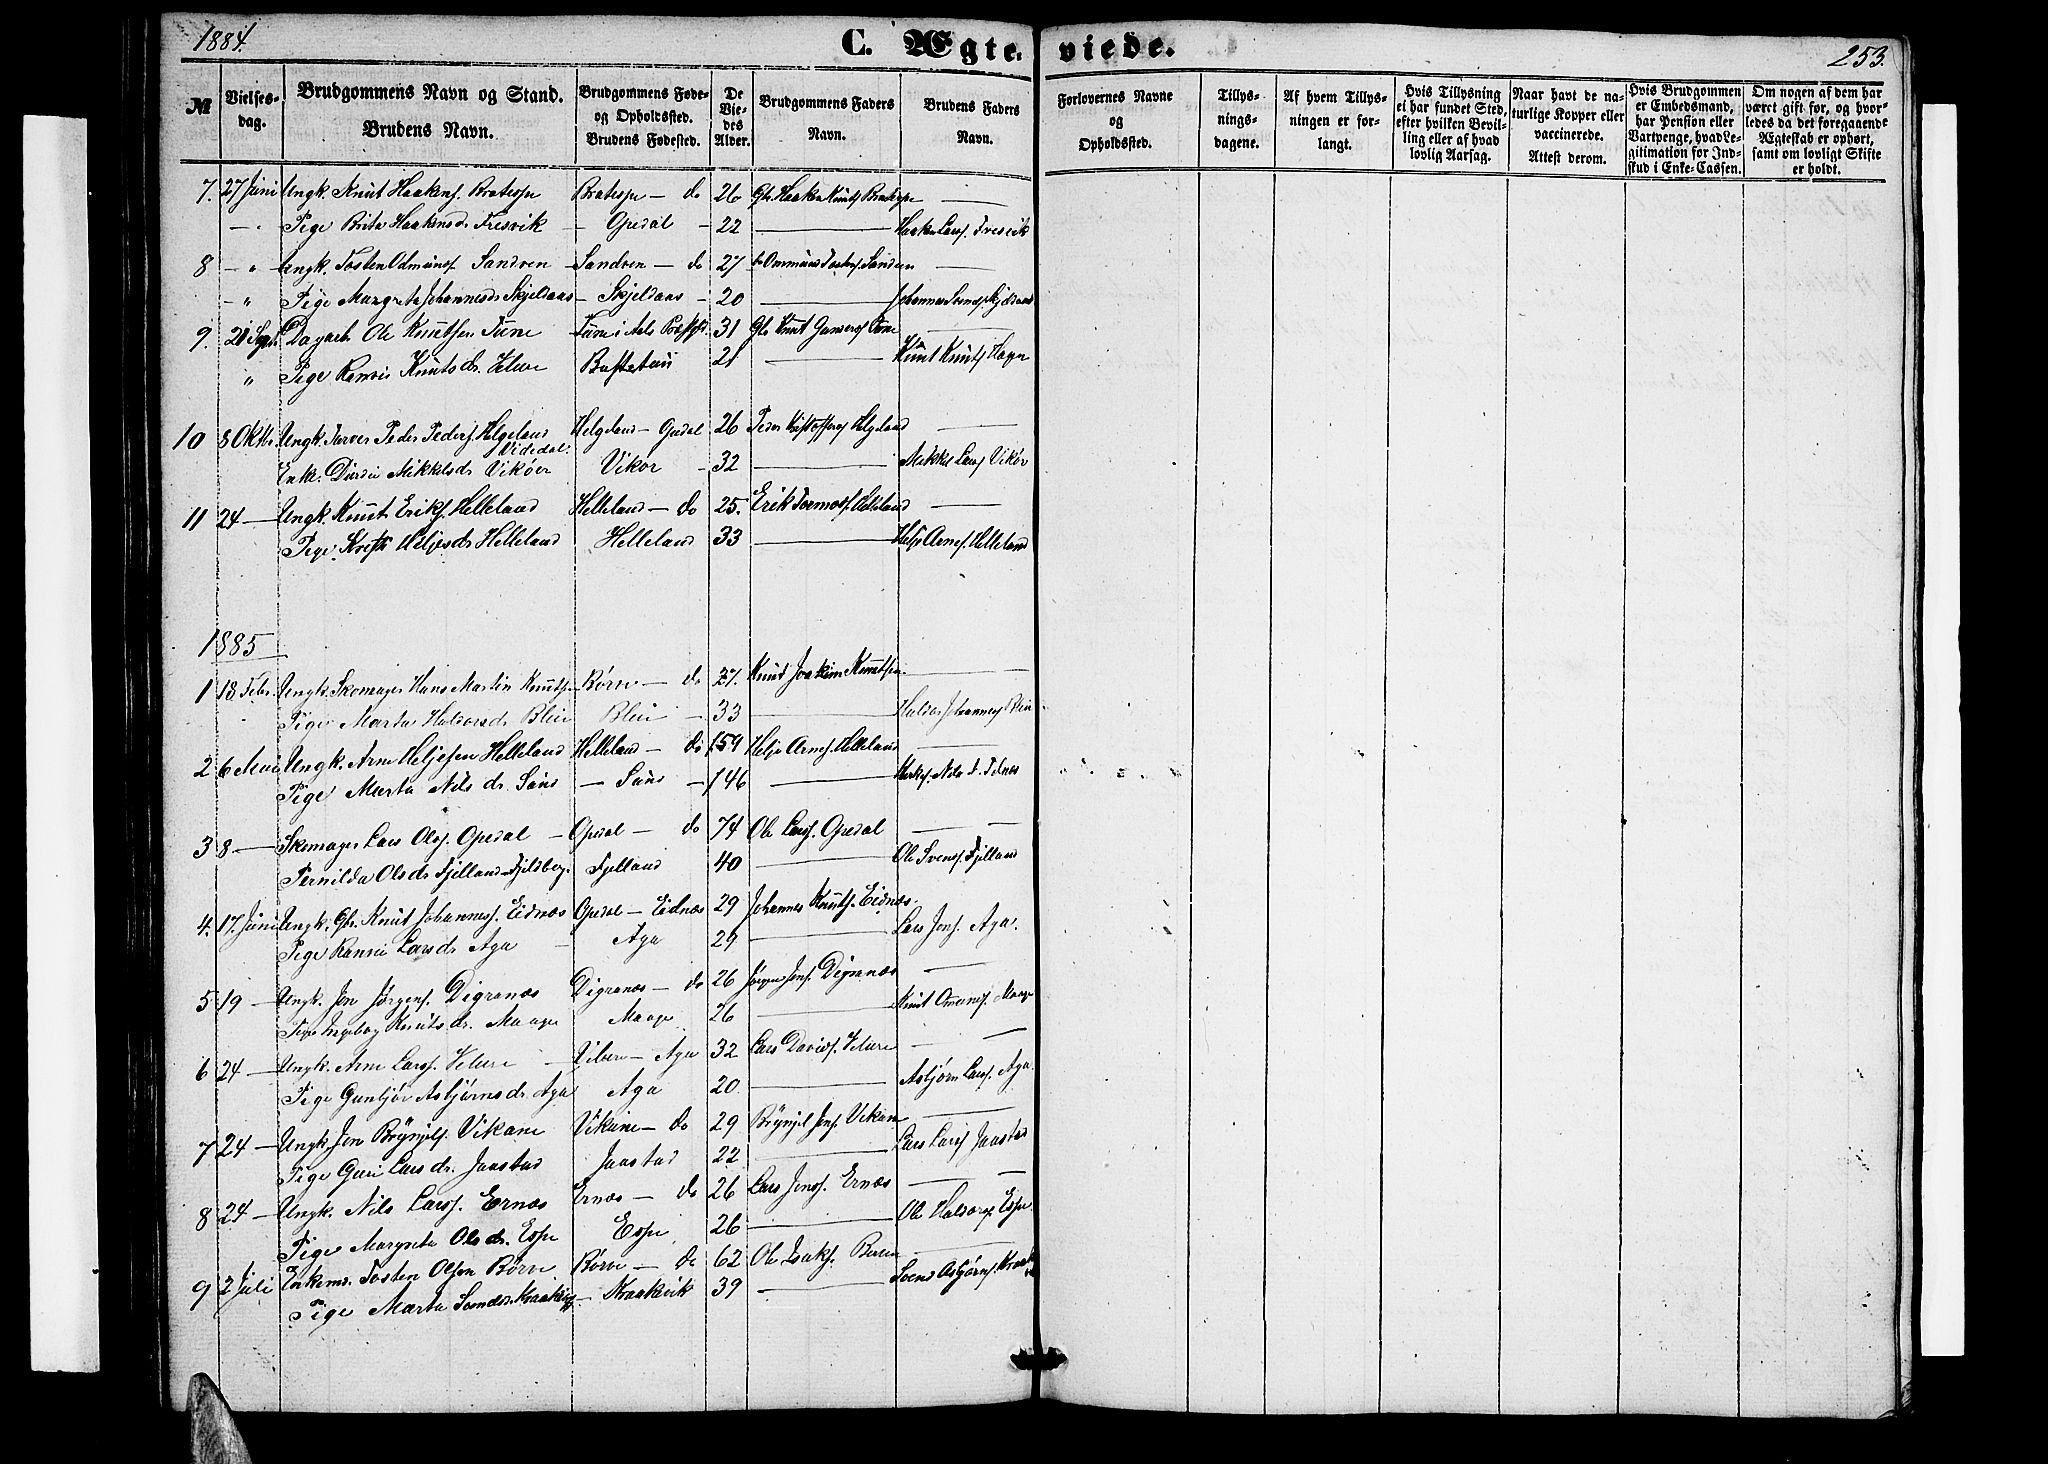 1884.
C. Ægte-viede.
253.
No
Vielses-dag.
Brudgommens Navn og Stand.
Brudens Navn.
Brudgommens Føde- og Opholdssted.
Brudens Fødested.
De Vie-des Alder.
Brudgommens Faders Navn.
Brudens Faders Navn.
Forlovernes Navne og Opholdssted.
Tillys-nings-dagene.
Af hvem Tillys-ningen er for-langt.
Hvis Tillysning ei har fundet Sted, efter hvilken Bevil-ling eller af hvad lovlig Aarsag.
Naar havt de na-turlige Kopper eller vaccinerede.
Attest derom.
Hvis Brudgommen er Embedsmand, har Pension eller Vartpenge, hvad Le-gitimation for Ind-skud i Enke-Cassen.
Om nogen af dem har været gift før, og hvor-ledes da det foregaaende Ægteskab er ophørt, samt om lovligt Skifte er holdt.
7. 27 Juni Ungk. Knut Haakens. Bratespe Bratespe — do 26 Gbr. Haaken Knuts. Bratespe —
— " Pige Brita Haakensdr. Fresvik — Opedal — 22 — Haaken Lars. Fresvik
8 — " Ungk. Tosten Odmunds. Sandven Sandven — do 27 do Ommund Tostens. Sandven —
— " Pige Margreta Johannesdr. Skjeldaas — Skjeldaas — 20 — Johannes Svends. Skjeldaas
9. 21 Septr. Dagarb. Ole Knutsen Tune Tune i Aals Præstgj. 31 Gbr. Knut Gunders. Tune —
" Pige Ranvei Knutsdr. Velure Buftetun 21 — Knut Knuts. Hagen
10 8 Oktbr. Ungk. Peder Peders. Helgeland Helgeland — Opedal 26 Peder Kristoffers. Helgeland —
Videdal.
Enke. Durdei Mikkelsdr. Vikøer Vikør — 32 — Mikkel Lars. Vikør
11 24 — Ungk. Knut Eriks. Helleland Helleland — do 25. Erik Tormos. Helleland —
Pige Heljesdr. Helleland Helleland 33 — Helje Arnes. Helleland
1885
1 18 Febr. Ungk. Skomager Hans Martin Knuts. Børve — do 27. Knut Joakim Knutsen —
Pige Marta Haldorsdr. Bleie Bleie — 33 — Haldor Johannes. Bleie
2 6 Mai Ungk. Arne Heljesen Helleland Helleland — do 59 Helje Arnes. Helleland —
Pige Marta Nilsdr. Saus — Saus — 46 — Kirkes. Nils Tidnæs
3 8 — Skomager Lars Ols. Opedal — Opedal — do 74 Ole Lars. Opedal —
Pernilda Olsdr. Fjelland Fjeldberg. Fjelland 40 — Ole Svens. Fjelland
4. 17. Juni Ungk. Gbr. Knut Johannes. Eidnæs Opedal — Eidnæs 29 Johannes Knuts. Eidnæs.
Pige Ranvei Larsdr. Aga — Aga 29 — Lars Jons. Aga.
5 19 — Ungk. Jon Jørgens. Digranæs Digranæs — do 26 Jørgen Jons. Digranæs —
Pige Ingeborg Knutsdr. Maage Maage 26 — Knut Omuns. Maage
6 24 — Ungk. Arne Lars. Velure — Velure — Aga 32 Lars Davids. Velure —
Pige Guntjør Asbjørnsdr. Aga Aga 20 — Asbjørn Lars. Aga
7 24 — Ungk. Jon Brynjels. Vikane Vikane — do 29 Brynjel Jons. Vikane —
Pige Guri Larsdr. Jaastad Jaastad 22 — Lars Lars. Jaastad
8 24 — Ungk. Nils Lars. Ernæs Ernæs — do 26 Lars Jons. Ernæs —
Pige Margreta Olsdr. Espe Espe 26 — Ole Haldors. Espe
9 2 Juli Enkem. Tosten Olsen Børve Børve — do 62 Ole Isaks. Børve —
Pige Marta Svendsdr. Kraakevig — Kraakevik 39 — Svend Asbjørns.